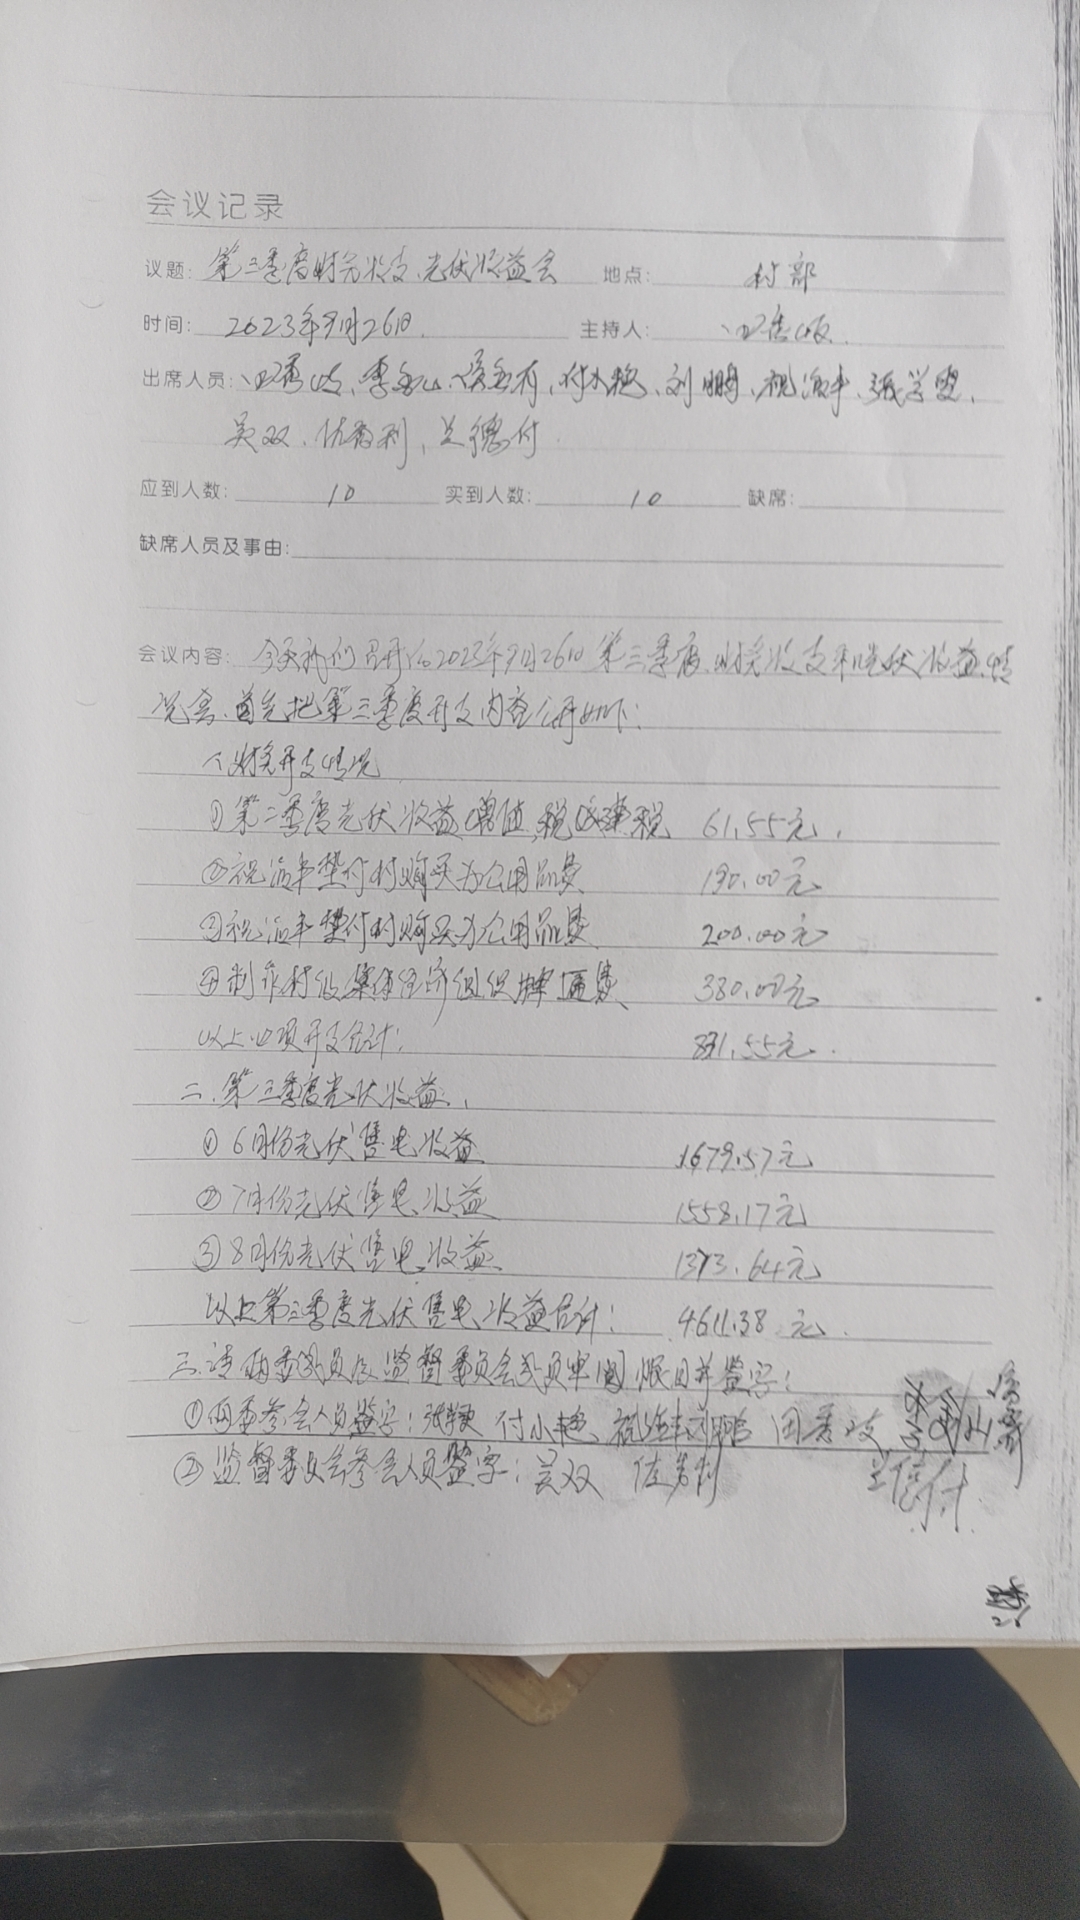 会议记录
议题: 第三季度财务收支、光伏收益会 地点: 村部
时间: 2023年9月26日 主持人: 田秀岐
出席人员: 田秀岐、李玉山、侯玉有、付小艳、刘鹏、祝海丰、张学
吴双、佐秀利、兰德付
应到人数: 10 实到人数: 10 缺席:
缺席人员及事由:
会议内容: 今天我们召开的2023年9月26日第三季度、财务收支和光伏收益、情
况会、首先把第三季度开支内容公开如下:
一、财务开支情况
①第二季度光伏收益增值税城建税 61.55元.
②祝海丰垫付村购买办公用品费 190.00元
③祝海丰垫付村购买办公用品费 200.00元
④制作村级集体经济组织牌匾费 380.00元
以上四项开支合计: 831.55元.
二、第三季度光伏收益.
① 6月份光伏售电收益 1679.57元
② 7月份光伏售电收益 1558.17元
③ 8月份光伏售电收益 1373.64元
以上第三季度光伏售电收益合计: 4611.38元.
三、请两委成员及监督委员会成员审阅账目并签字:
①两委参会人员签字: 付小艳、祝海丰 刘鹏 田秀岐
②监督委员会参会人员签字: 吴双 佐秀利 兰德付